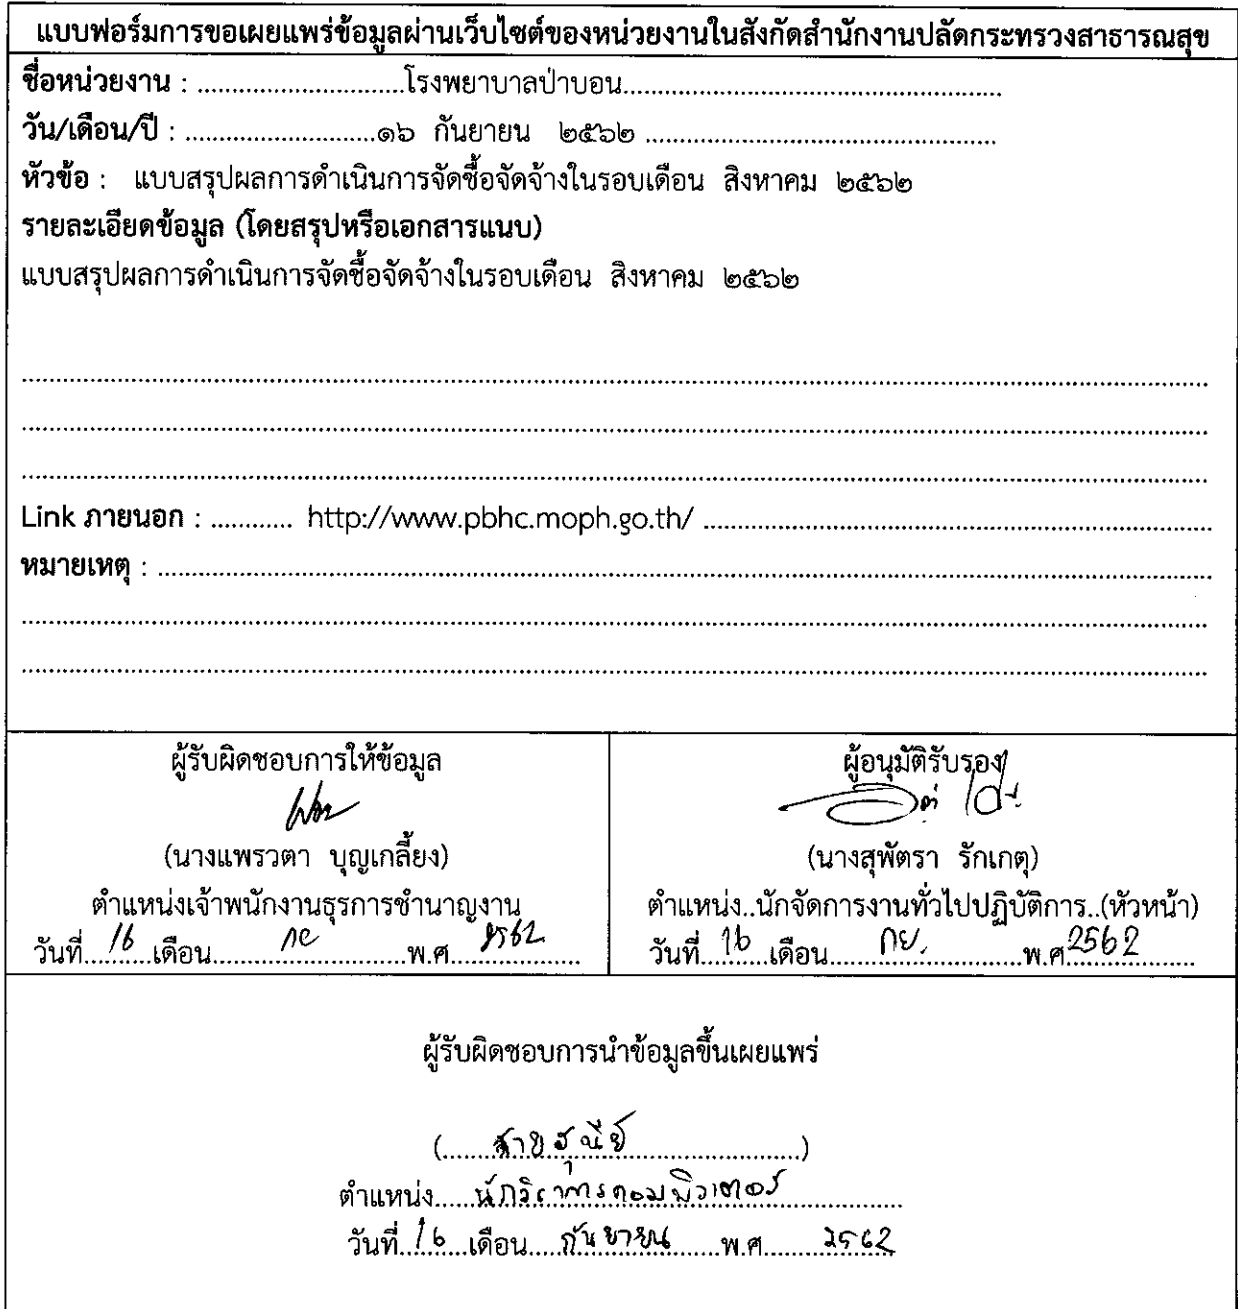 แบบฟอร์มการขอเผยแพร่ข้อมูลผ่านเว็บไซต์ของหน่วยงานในสังกัดสำนักงานปลัดกระทรวงสาธารณสุข
ชื่อหน่วยงาน : ..............................โรงพยาบาลป่าบอน.......................................................
วัน/เดือน/ปี : ............................๑๖ กันยายน ๒๕๖๒ ...................................................
หัวข้อ : แบบสรุปผลการดำเนินการจัดซื้อจัดจ้างในรอบเดือน สิงหาคม ๒๕๖๒
รายละเอียดข้อมูล (โดยสรุปหรือเอกสารแนบ)
แบบสรุปผลการดำเนินการจัดซื้อจัดจ้างในรอบเดือน สิงหาคม ๒๕๖๒
Link ภายนอก : ............ http://www.pbhc.moph.go.th/ ..........................................................................
หมายเหตุ : ..........................................................................................................................
ผู้รับผิดชอบการให้ข้อมูล
(นางแพรวตา บุญเกลี้ยง)
ตำแหน่งเจ้าพนักงานธุรการชำนาญงาน
วันที่....16....เดือน.......กย.......พ.ศ....2562....
ผู้อนุมัติรับรอง
(นางสุพัตรา รักเกตุ)
ตำแหน่ง..นักจัดการงานทั่วไปปฏิบัติการ..(หัวหน้า)
วันที่....16....เดือน.......กย........พ.ศ.2562....
ผู้รับผิดชอบการนำข้อมูลขึ้นเผยแพร่
(.....................)
ตำแหน่ง......นักวิชาการคอมพิวเตอร์..........
วันที่..16...เดือน....กันยายน.......พ.ศ.......2562